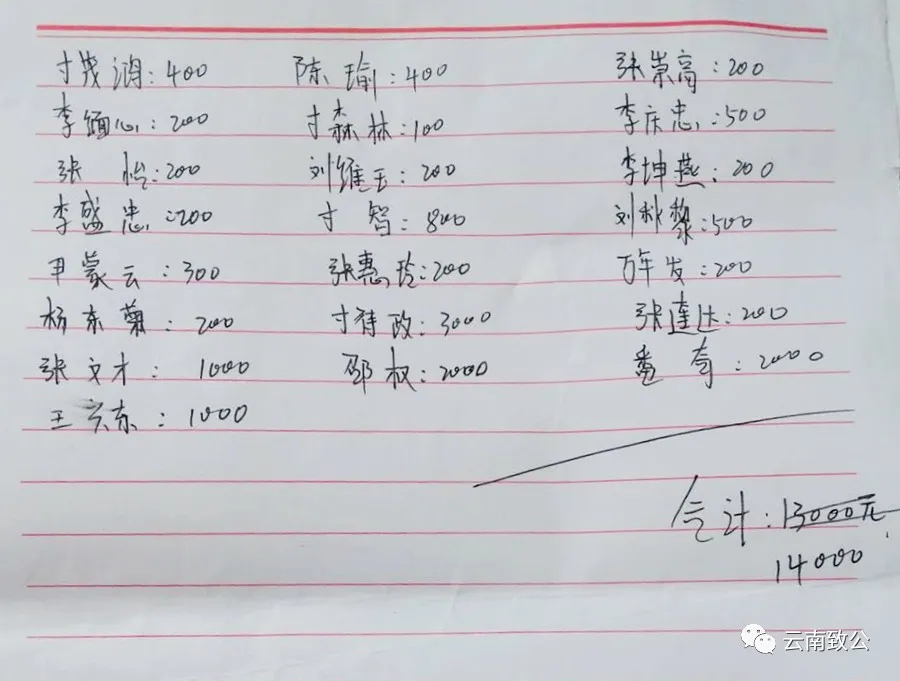 寸茂鸿：400 陈瑜：400 张崇高：200
李缅心：200 寸森林：100 李庆忠：500
张怡：200 刘维玉：200 李坤燕：200
李盛忠：200 寸智：800 刘秋黎：500
尹蒙云：300 张惠玲：200 万年发：200
杨东菊：200 寸待政：3000 张达：200
张文才：1000 邵权：2000 奇：2000
王东：1000
合计：13000元
14000
云南致公